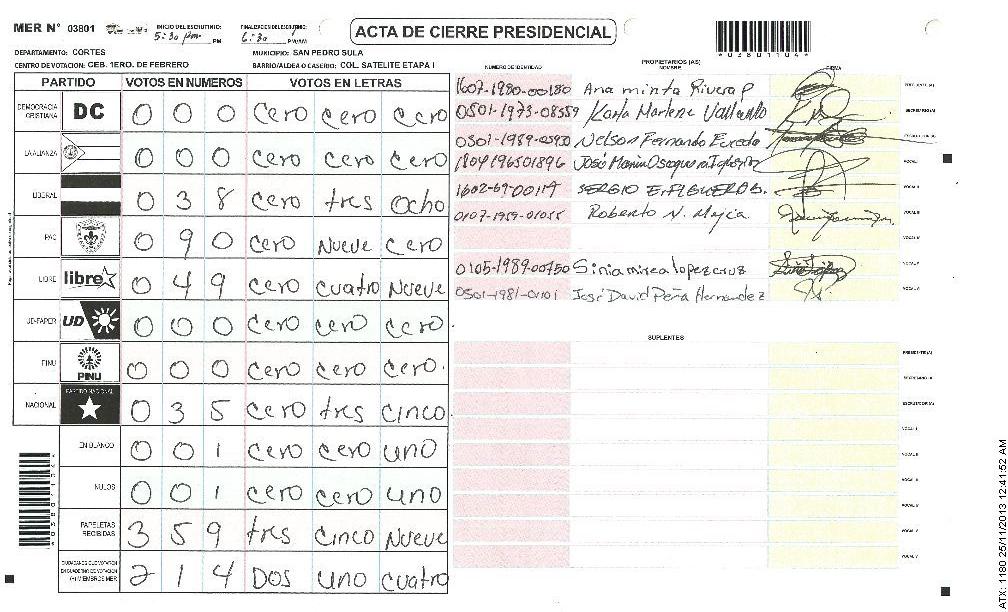 MER N° 03801 INICIO DEL ESCRUTINIO: 5:30 pm PM FINALIZACION DEL ESCRUTINIO: 6:30 PM/AM ACTA DE CIERRE PRESIDENCIAL
DEPARTAMENTO: CORTES MUNICIPIO: SAN PEDRO SULA
CENTRO DE VOTACION: CEB. 1ERO. DE FEBRERO BARRIO/ALDEA O CASERIO: COL. SATELITE ETAPA I
PARTIDO VOTOS EN NUMEROS VOTOS EN LETRAS
DEMOCRACIA CRISTIANA DC 0 0 0 cero cero cero
LA ALIANZA 0 0 0 cero cero cero
LIBERAL 0 3 8 cero tres ocho
PAC 0 9 0 cero Nueve cero
LIBRE libre 0 4 9 cero cuatro Nueve
UD-FAPER UD 0 0 0 cero cero cero
PINU PINU 0 0 0 cero cero cero.
NACIONAL PARTIDO NACIONAL 0 3 5 cero tres cinco
EN BLANCO 0 0 1 cero cero uno
NULOS 0 0 1 cero cero uno
PAPELETAS RECIBIDAS 3 5 9 tres cinco Nueve
CIUDADANOS QUE VOTARON EN CUADERNO DE VOTACION (+) MIEMBROS MER 2 1 4 DOS uno cuatro
*03801104*
PROPIETARIOS (AS)
NUMERO DE IDENTIDAD NOMBRE FIRMA
1607-1980-00180 Ana minta Rivera P PRESIDENTE (A)
0501-1973-08559 Karla Marlene SECRETARIO (A)
0501-1989-05930 Nelson Fernando ESCRUTADOR (A)
1804196501896 José Maria VOCAL I
SERGIO E. FIGUEROA VOCAL II
Roberto N. Mejia VOCAL III
VOCAL IV
0105-1989-00750 lopez cruz VOCAL V
0501-1981-01101 José David Peña Hernandez
SUPLENTES
PRESIDENTE (A)
SECRETARIO (A)
ESCRUTADOR (A)
VOCAL I
VOCAL II
VOCAL III
VOCAL IV
VOCAL V
*03801104*
ATX: 1180 25/11/2013 12:41:52 AM